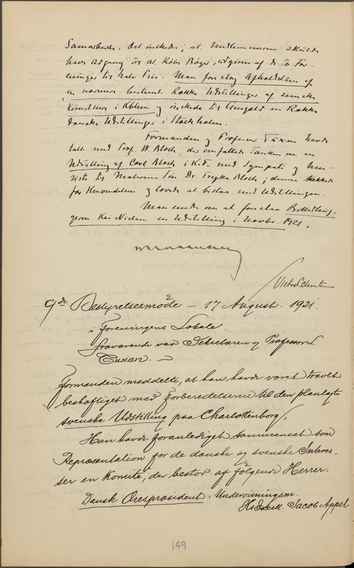 Samarbejde, det ønskede, at Medlemmerne skulde
have Adgang til at købe Bøger, udgivne af d. o. For-
eninger til halv Pris. Man foreslog Afholdelsen af
en nærmere bestemt Række Udstillinger af svenske
Kunstnere i Kbhvn og ønskede til Gengæld en Række
danske Udstillinger i Stockholm.
Formanden og Professor Tuxen havde
talt med Prof. W. Bloch, der omfattede Tanken om en
Udstilling af Carl Bloch i K.f. med Sympati og hen-
viste til Dr.
for Henvendelse og lovede at bistaa med Udstillingen.
Man enedes om at foreslaa
Udstilling i 1921.
9de Bestyrelsesmøde - 17 August. 1921.
i Foreningens Lokale
Fraværende var Sekretæren og Professor
Tuxen. -
Formanden meddelte, at han havde været travlt
beskæftiget med Forberedelserne til den planlagte
svenske Udstilling paa Charlottenborg.
Han havde foranlediget sammensat som
Repræsentation for de danske og svenske Interes-
ser en Komité, der bestod af følgende Herrer.
Dansk Ærespræsident: Undervisningsm.
Jacob Appel
149